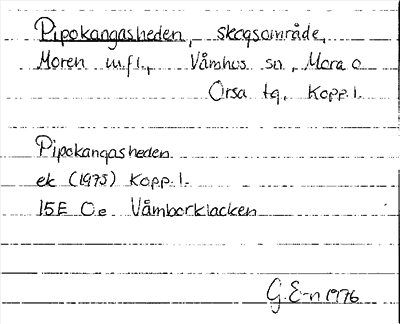 Pipokangasheden, skogsområde,
Moren m.fl., Våmhus sn, Mora o
Orsa tg, Kopp.l.
Pipokangasheden
ek (1975) Kopp.l.
15E 0e Våmborklacken
G.E-n 1976